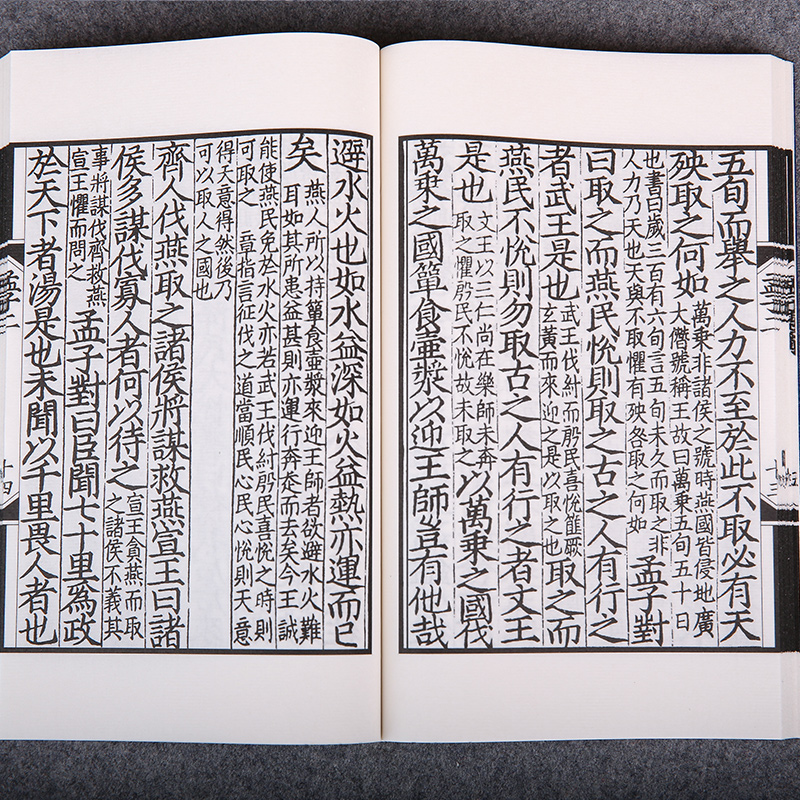 五旬而舉之人力不至於此不取必有天
殃取之何如萬乘非諸侯之號時燕國皆侵地廣
大僭號稱王故曰萬乘五旬五十日
也書曰歲三百有六旬言五旬未久而取之非
人力乃天也天與不取懼有殃咎取之何如孟子對
曰取之而燕民悅則取之古之人有行之
者武王是也武王伐紂而殷民喜悅篚厥
玄黃而來迎之是以取之也取之而
燕民不悅則勿取古之人有行之者文王
是也文王以三仁尚在樂師未奔
取之懼殷民不悅故未取之以萬乘之國伐
萬乘之國簞食壺漿以迎王師豈有他哉
避水火也如水益深如火益熱亦運而已
矣燕人所以持簞食壺漿來迎王師者欲避水火難
耳如其所患益甚則亦運行奔走而去矣今王誠
能使燕民免於水火亦若武王伐紂殷民喜悅之時則
可取之 章指言征伐之道當順民心民心悅則天意
得天意得然後乃
可以取人之國也
齊人伐燕取之諸侯將謀救燕宣王曰諸
侯多謀伐寡人者何以待之宣王貪燕而取
之諸侯不義其
事將謀伐齊救燕
宣王懼而問之孟子對曰臣聞七十里為政
於天下者湯是也未聞以千里畏人者也
孟子二
十四